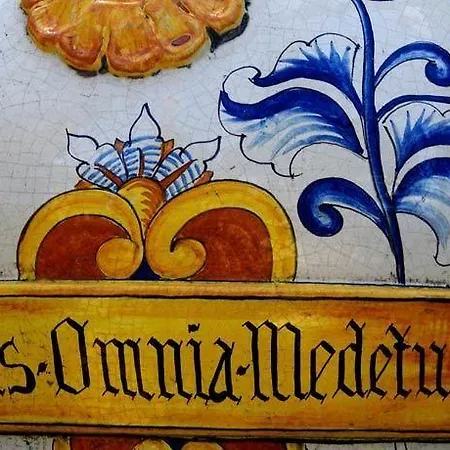 s·Omnia·Medetu